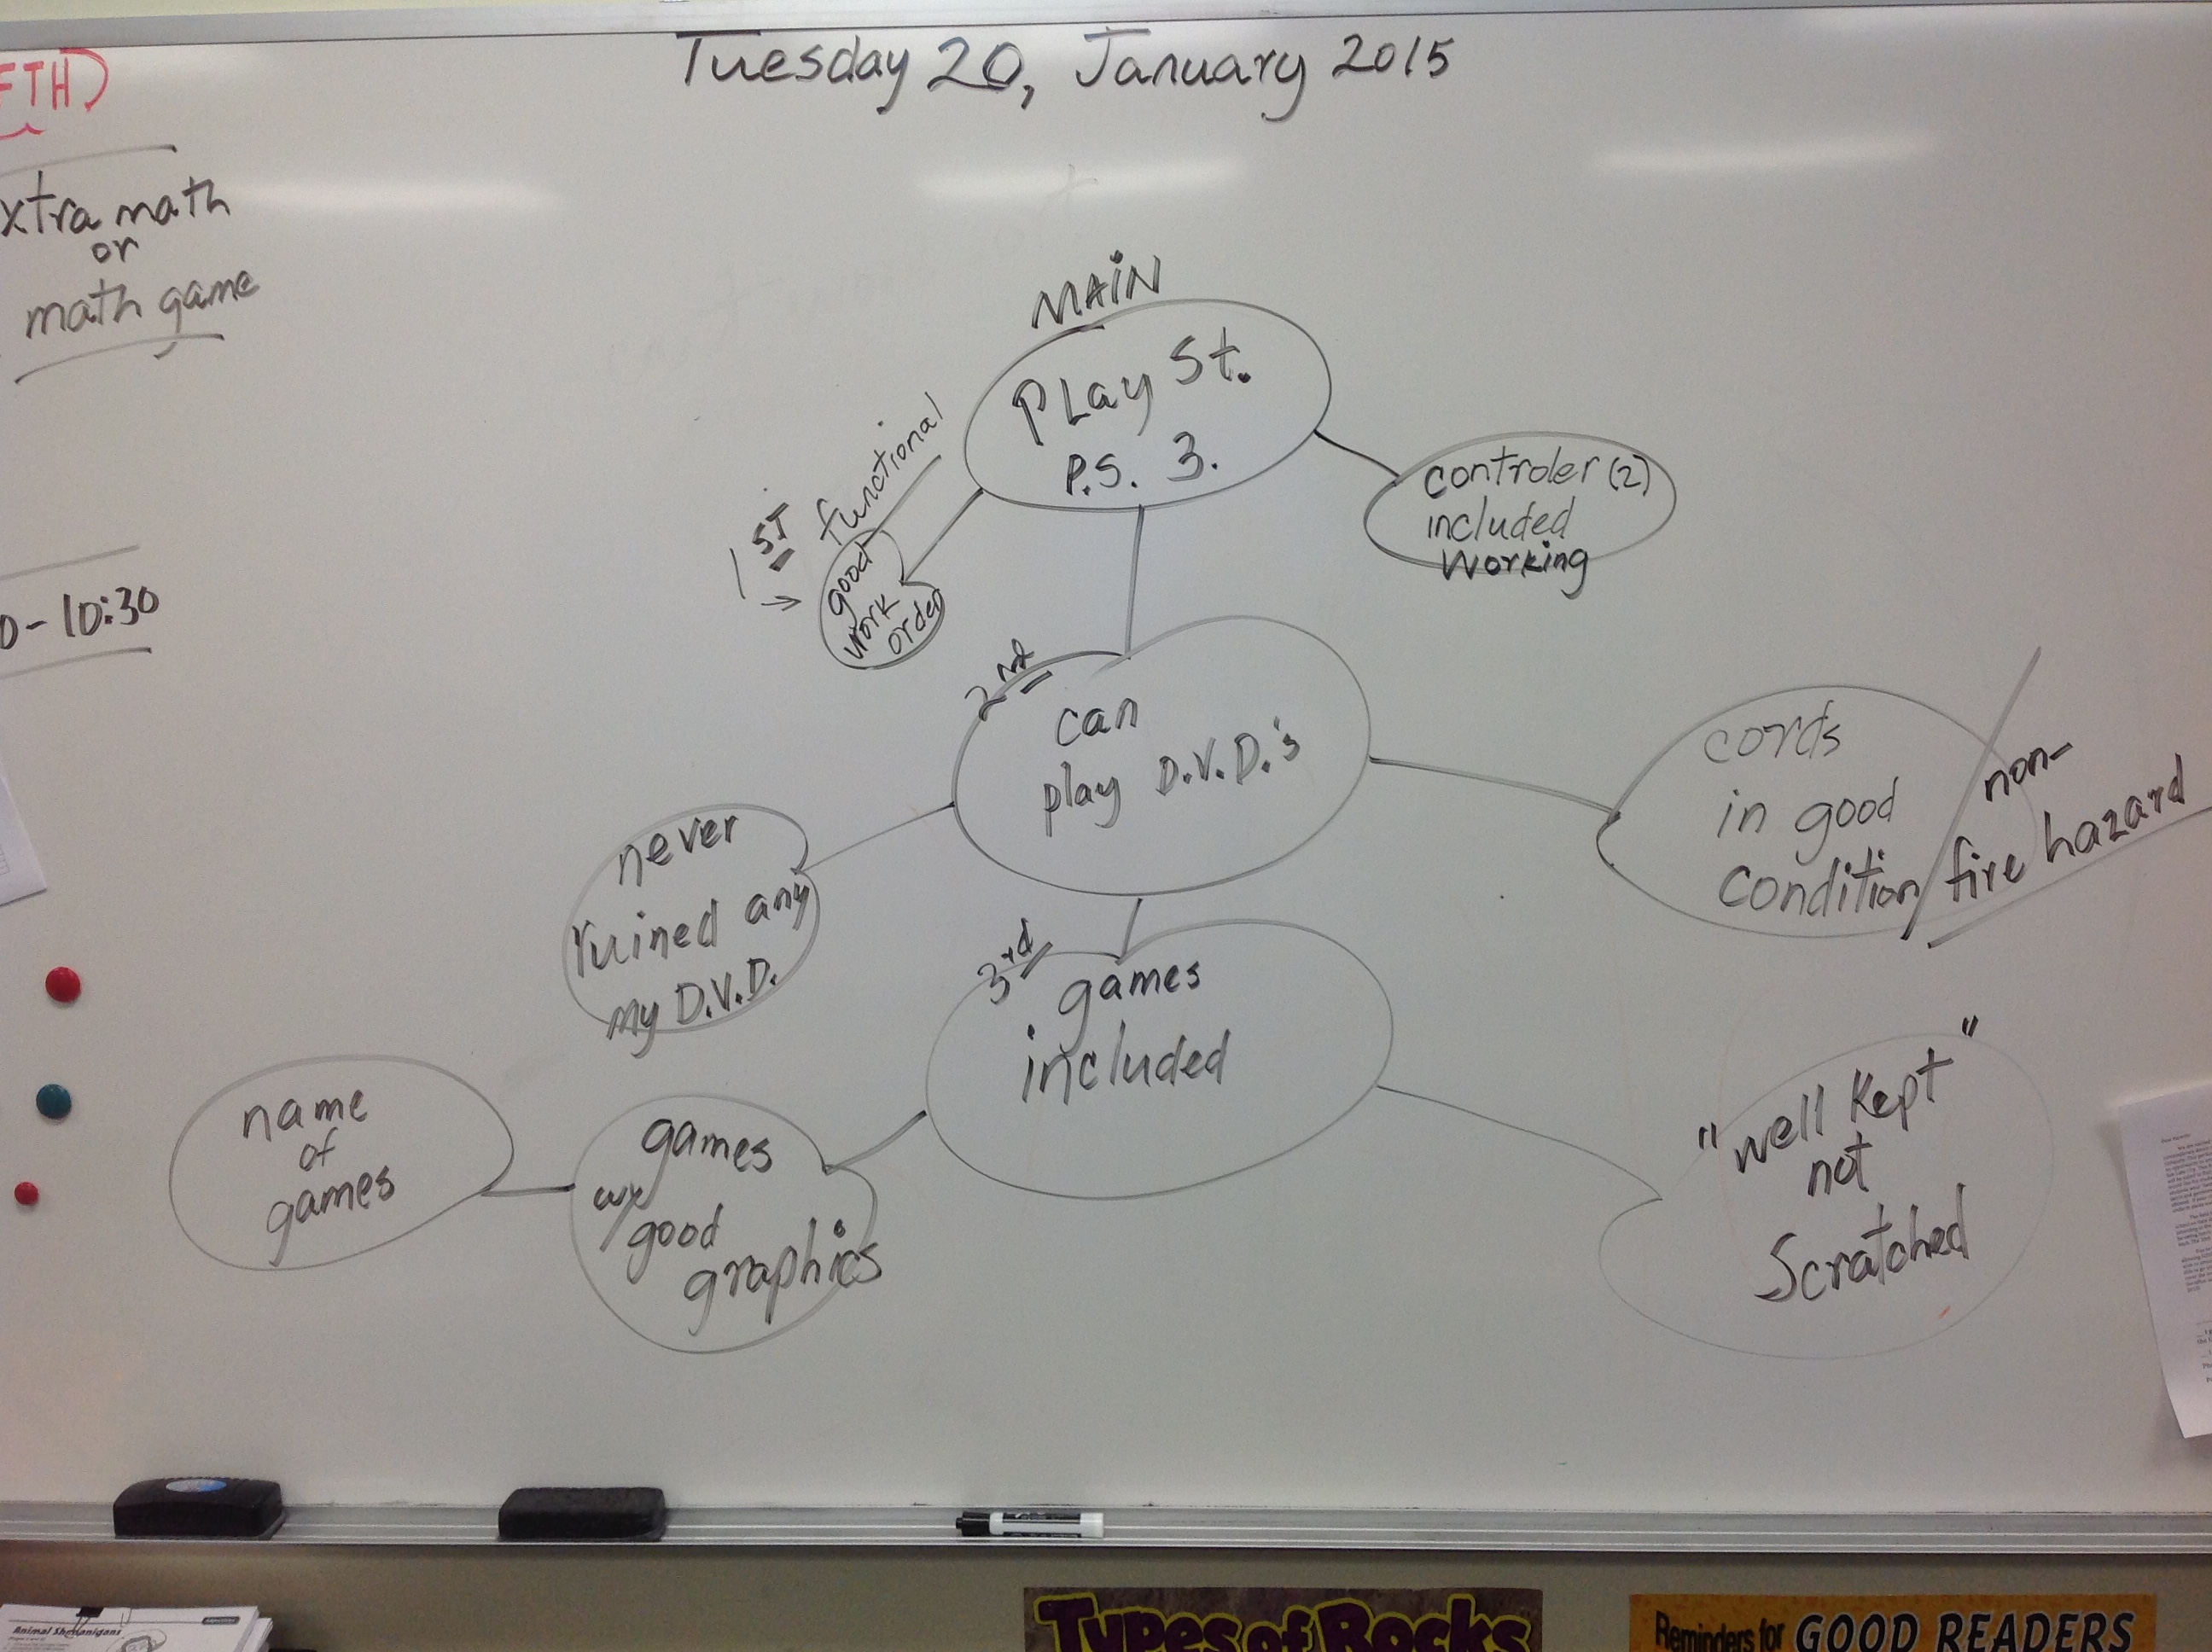 Tuesday 20, January 2015
ETH)
xtra math
or
math game
0-10:30
MAIN
PLay St.
P.S. 3.
controler (2)
included
Working
1ST functional
good
work
order
2nd
can
play D.V.D.'s
cords
in good
condition
non-
fire hazard
never
ruined any
my D.V.D.
3rd
games
included
name
of
games
games
w/
good
graphics
"well kept"
not
Scratched
Animal Shenanigans
Types of Rocks
Reminders for GOOD READERS